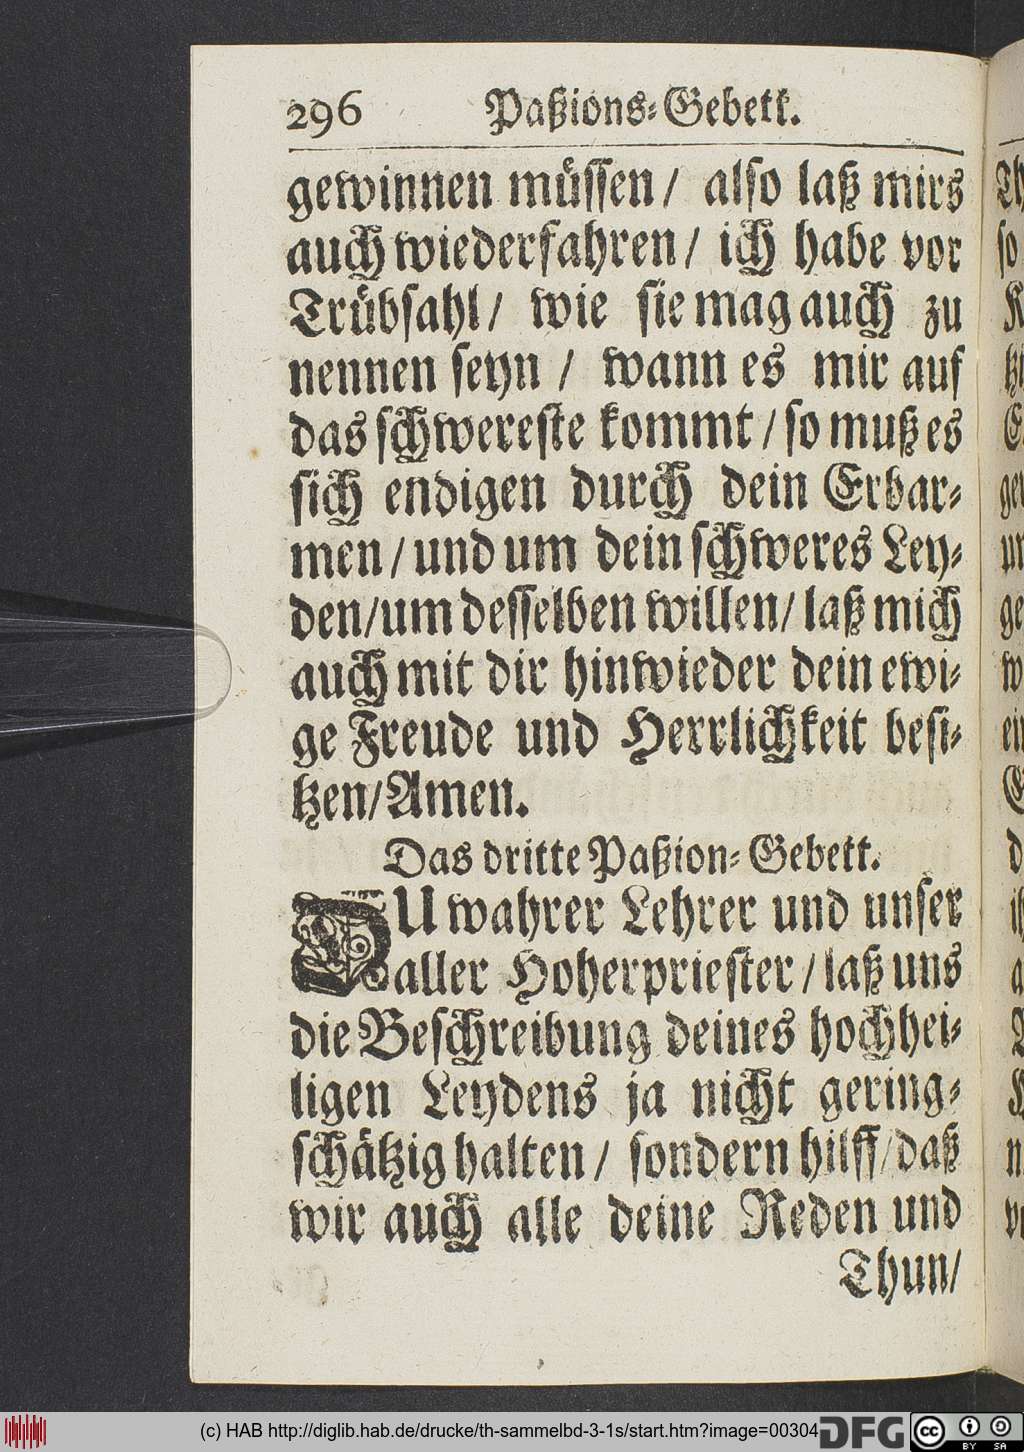 296 Paßions-Gebett.
gewinnen müssen/ also laß mirs
auch wiederfahren/ ich habe vor
Trübsahl/ wie sie mag auch zu
nennen seyn / wann es mir auf
das schwereste kommt / so muß es
sich endigen durch dein Erbar-
men / und um dein schweres Ley-
den/um desselben willen/ laß mich
auch mit dir hinwieder dein ewi-
ge Freude und Herrlichkeit besi-
tzen/Amen.
Das dritte Paßion-Gebett.
DU wahrer Lehrer und unser
aller Hoherpriester / laß uns
die Beschreibung deines hochhei-
ligen Leydens ja nicht gering-
schätzig halten / sondern hilff/daß
wir auch alle deine Reden und
Thun/
Th
so
(c) HAB http://diglib.hab.de/drucke/th-sammelbd-3-1s/start.htm?image=00304
DFG
cc BY SA